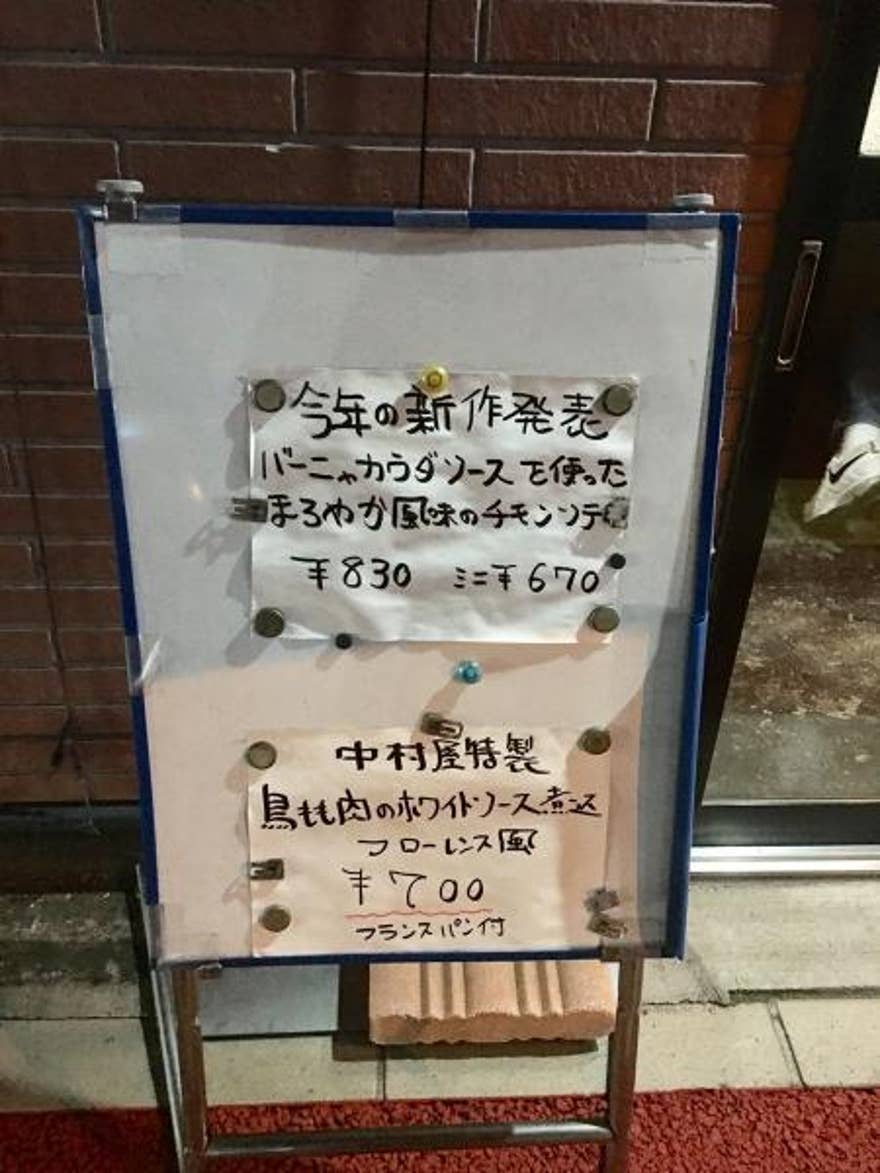 今年の新作発表
バーニャカウダソースを使った
まろやか風味のチキンソテー
￥830 ミニ￥670
中村屋特製
鳥もも肉のホワイトソース煮込
フローレンス風
￥700
フランスパン付